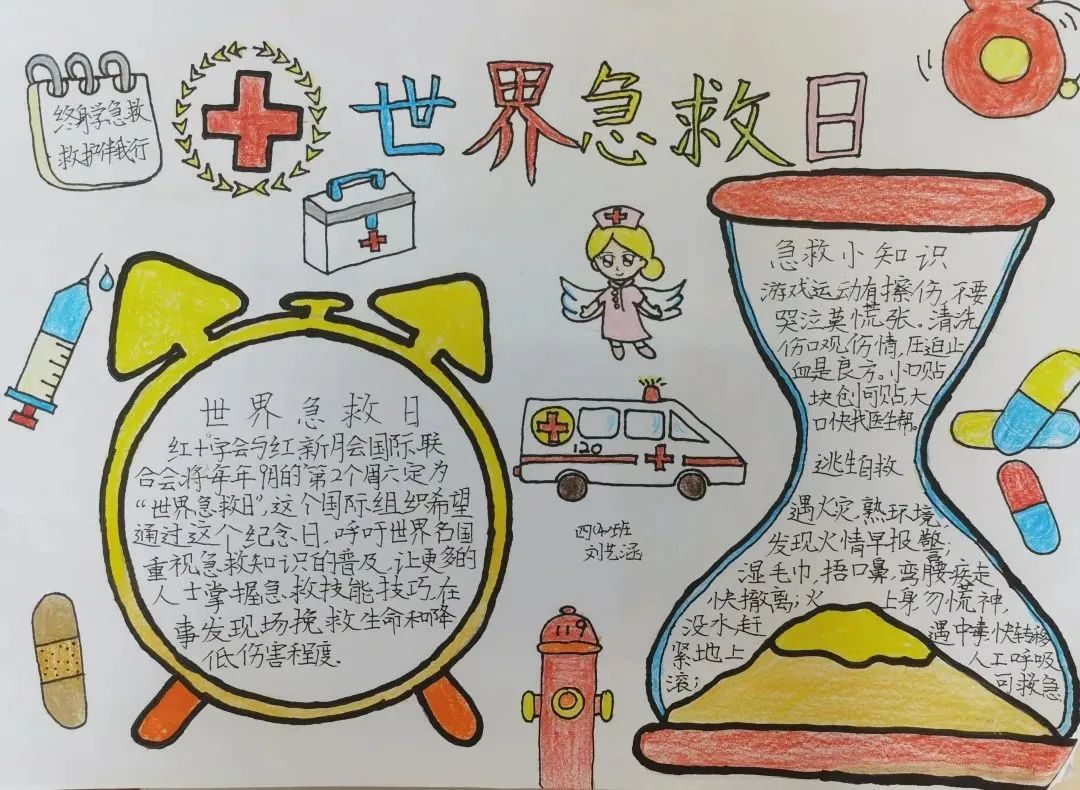 终身学急救
救护伴我行
世界急救日
世界急救日
红十字会与红新月会国际联
合会将每年9月的第2个周六定为
“世界急救日”,这个国际组织希望
通过这个纪念日,呼吁世界各国
重视急救知识的普及,让更多的
人士掌握急救技能技巧,在
事发现场挽救生命和降
低伤害程度.
120
四(4)班
刘艺涵
119
急救小知识
游戏运动有擦伤,不要
哭泣莫慌张。清洗
伤口观伤情,压迫止
血是良方。小口贴
块创可贴,大
口快找医生帮。
逃生自救
遇火灾,熟环境,
发现火情早报警;
湿毛巾,捂口鼻,弯腰疾走
快撤离;火 上身勿慌神,
没水赶
紧地上
滚;
遇中毒快转移
人工呼吸
可救急